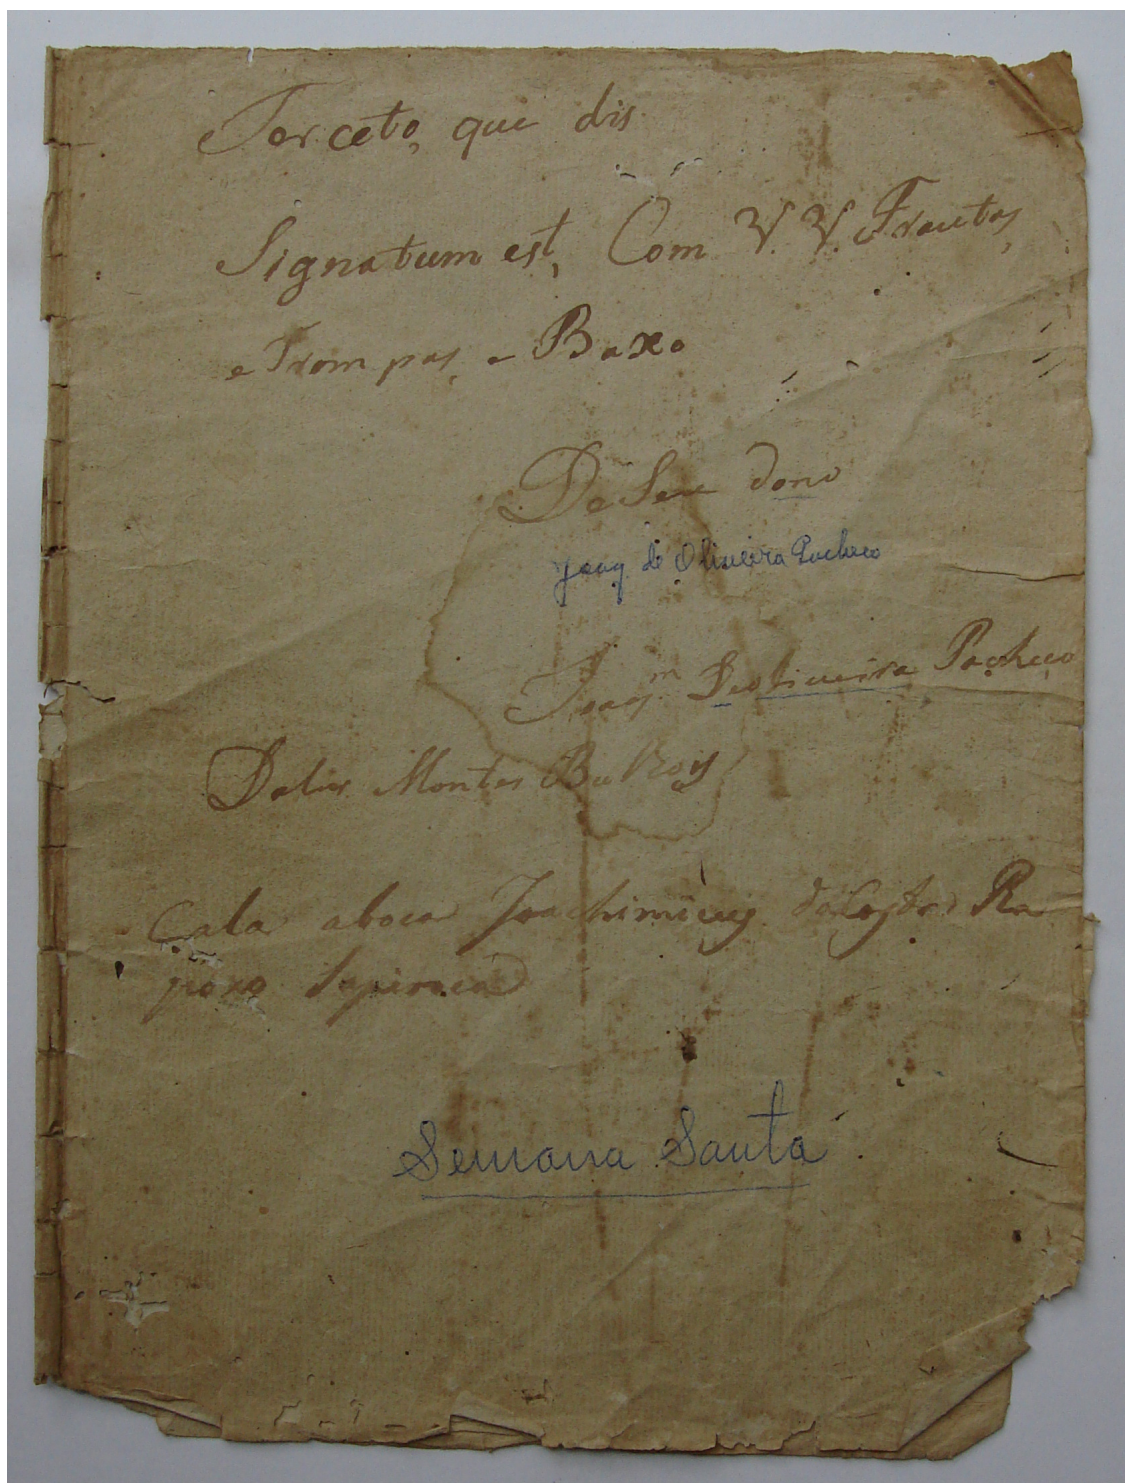 Terceto, que dis
Signatum est, Com V. V. Frautas,
e Trompas, e Baxo
De Seu dono
Joaq de Oliveira Pacheco
Joaq^m Deoliveira Pacheco
Montes
Cala aboca Joachim dacosta Ra
poxo
Semana Santa